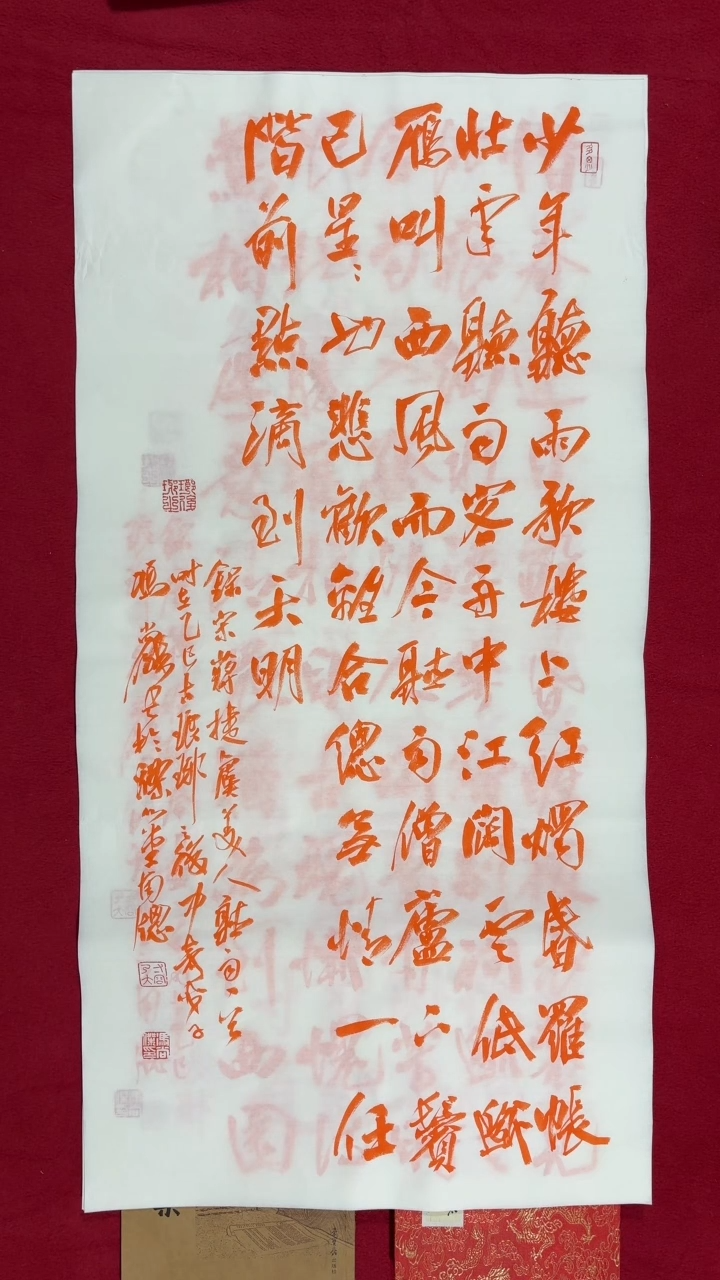 少年聽雨歌樓上紅燭昏羅帳
壯年聽雨客舟中江闊雲低斷
雁叫西風而今聽雨僧廬下鬢
已星〻也悲歡離合總無情一任
階前點滴到天明
錄宋蔣捷虞美人聽雨
時在乙巳古琅琊